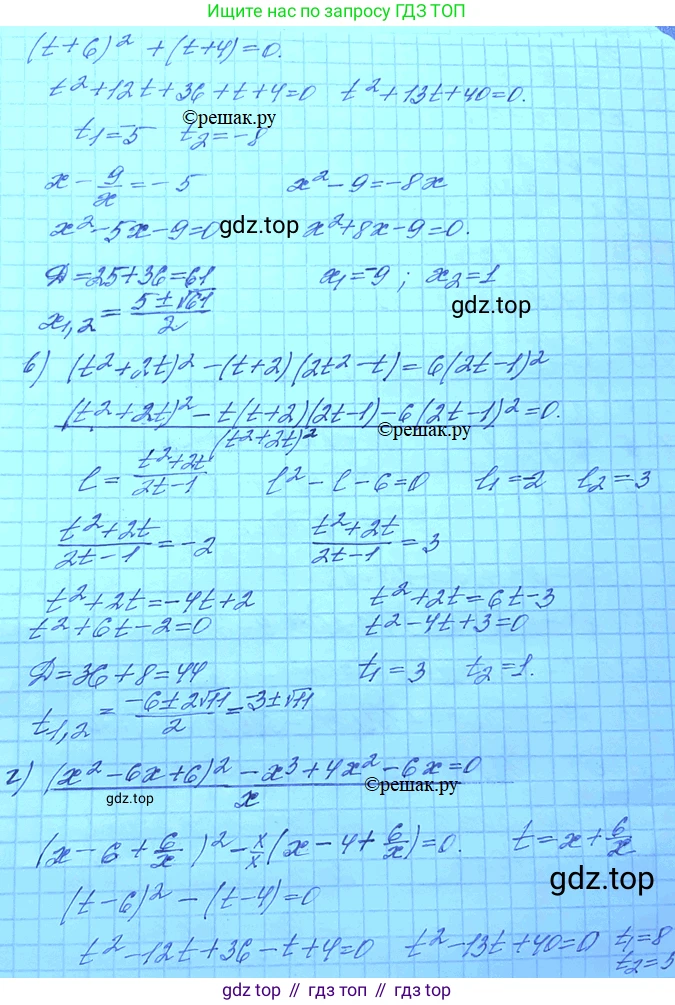 Ищите нас по запросу ГДЗ ТОП
(t+6)² + (t+4)=0.
t²+12t+36+t+4=0 t²+13t+40=0.
©решак.ру
t₁=-5 t₂=-8
x - 9/x = -5 x²-9=-8x
x²-5x-9=0 gdz.top x²+8x-9=0.
Д=25+36=61 x₁=-9; x₂=1
x₁,₂ = (5±√61)/2 gdz.top
в) (t²+2t)² - (t+2)(2t²-t)=6(2t-1)²
(t²+2t)² - t(t+2)(2t-1)-6(2t-1)²=0.
(t²+2t)² ©решак.ру
l = (t²+2t)/(2t-1) l²-l-6=0 l₁=-2 l₂=3
(t²+2t)/(2t-1) = -2 (t²+2t)/(2t-1) = 3
t²+2t=-4t+2 t²+2t=6t-3
t²+6t-2=0 t²-4t+3=0
Д=36+8=44 t₁=3 t₂=1.
t₁,₂ = (-6±2√11)/2 = -3±√11
г) ((x²-6x+6)² - x³+4x²-6x=0)/x
gdz.top ©решак.ру
(x-6+6/x)² - x/x(x-4+6/x)=0. t=x+6/x
(t-6)² - (t-4)=0 gdz.top
t²-12t+36-t+4=0 t²-13t+40=0 t₁=8
t₂=5
gdz.top // гдз.топ // гдз топ